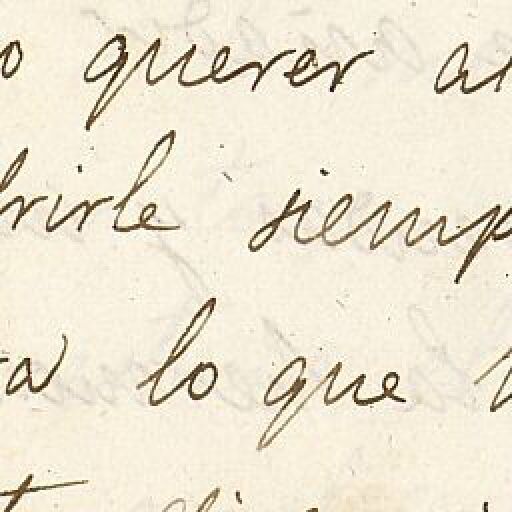 o querer a
rirle siemp
a lo que